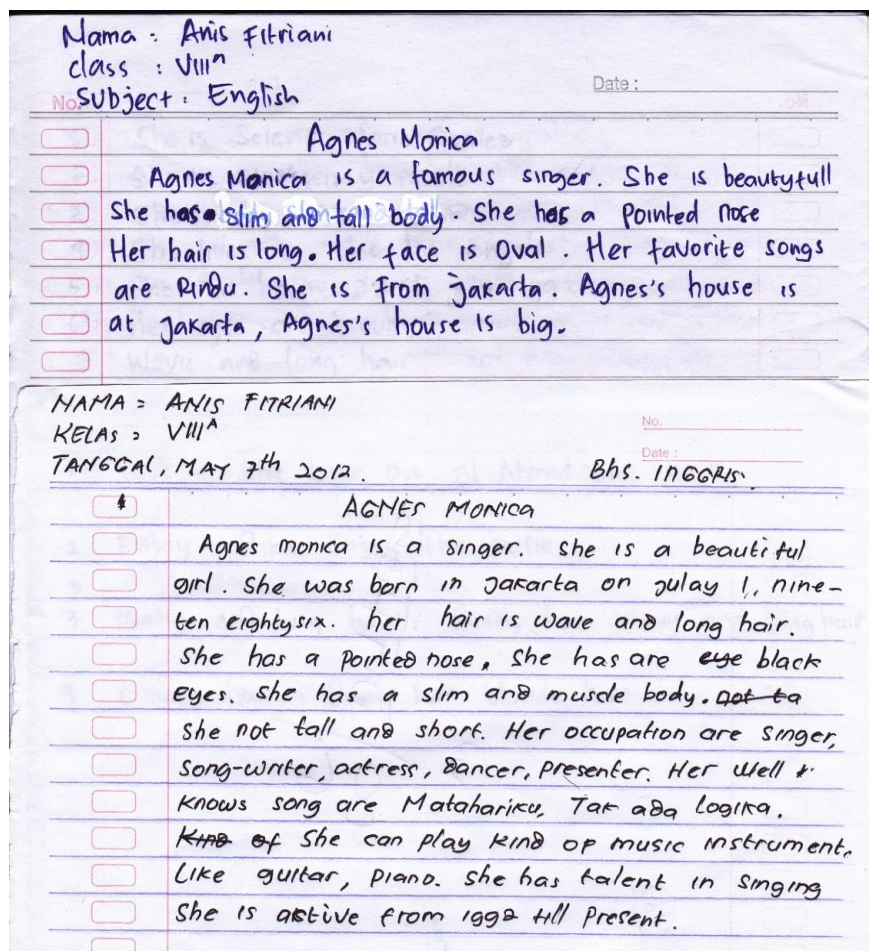 Nama : Anis Fitriani
class : VIII A
Date :
No. Subject : English
Agnes Monica
Agnes Monica is a famous singer. She is beautyfull
She has slim and tall body. She has a pointed nose
Her hair is long. Her face is Oval. Her favorite songs
are Rindu. She is from jakarta. Agnes's house is
at jakarta, Agnes's house is big.
NAMA : ANIS FITRIANI
No.
KELAS : VIII A
Date :
TANGGAL, MAY 7th 2012. Bhs. INGGRIS.
AGNES MONICA
Agnes monica is a singer. she is a beautiful
girl. She was born in Jakarta on julay 1, nine-
ten eightysix. her hair is wave and long hair.
She has a pointed nose, she has are eye black
eyes. she has a slim and muscle body. not ta
She not tall and short. Her occupation are singer,
song-writer, actress, dancer, presenter. Her well
knows song are Matahariku, Tak ada Logika.
Kind of She can play kind op music instrument,
Like guitar, piano. she has talent in singing
She is active from 1992 till present.